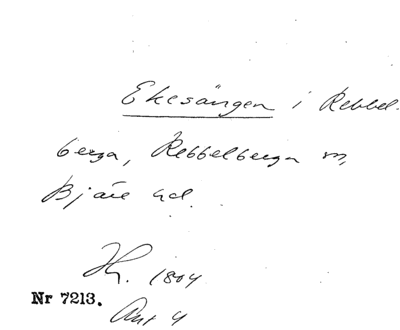 Ekesängen i Rebbel-
berga, Rebbelberga sn,
Bjäre hd.
Hy. 1804
Nr 7213.
Akt 4